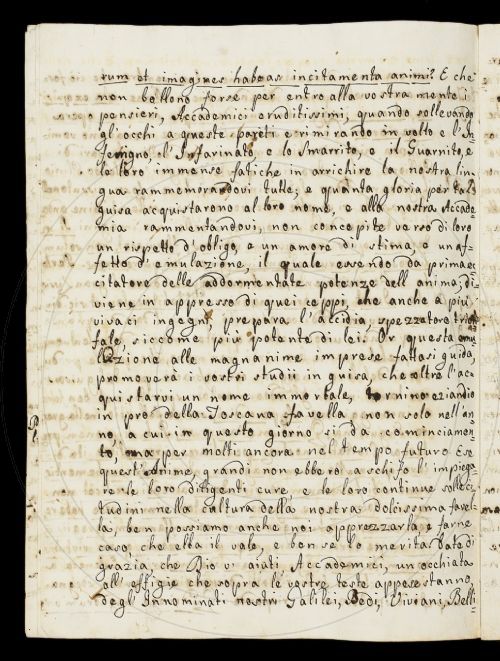 rum et imagines habeas incitamenta animi? E che
non bollono forse per entro alla vostra mente i
pensieri, Accademici eruditissimi, quando sollevando
gl'occhi a queste pareti e rimirando in volto e l'In-
ferigno, l'Infarinato e lo Smarrito, e il Guarnito, e
le loro immense fatiche in arrichire la nostra lin-
gua rammemorandovi tutte; e quanta gloria per tal
guisa acquistarono al loro nome, e alla nostra Accade-
mia rammentandovi, non concepite verso di loro
un rispetto d'obligo, e un amore di stima, e un af-
fetto d'emulazione, il quale essendo da prima ec-
citatore delle addormentate potenze dell'anima; di-
viene in appresso di quei ceppi, che anche a piu
vivaci ingegni, prepara l'accidia, spezzatore trion-
fale, siccome più potente di lei. Or questa emu-
lazione alle magnanime imprese fattasi guida,
promoverà i vostri studii in guisa, che oltre l'ac-
quistarvi un nome immortale, tornino eziandio
in prò della Toscana favella non solo nell'an-
no, a cui in questo giorno si da cominciamen-
to, ma per molti ancora nel tempo futuro. E se
quest'Anime grandi non ebbero a schifo l'impiega-
re le loro diligenti cure, e le loro continue solleci-
tudini nella cultura della nostra dolcissima favel-
la, ben possiamo anche noi apprezzarla e farne
caso, che ella il vale, e ben se lo merita. Date di
grazia, che Dio vi aiuti, Accademici, un'occhiata
all'effigie che sopra le vostre teste appese stanno
degl'Innominati nostri Galilei, Redi, Viviani, Belli-